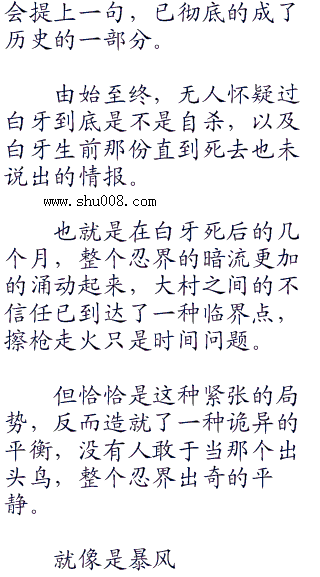 会提上一句，已彻底的成了
历史的一部分。
由始至终，无人怀疑过
白牙到底是不是自杀，以及
白牙生前那份直到死去也未
说出的情报。
www.shu008.com
也就是在白牙死后的几
个月，整个忍界的暗流更加
的涌动起来，大村之间的不
信任已到达了一种临界点，
擦枪走火只是时间问题。
但恰恰是这种紧张的局
势，反而造就了一种诡异的
平衡，没有人敢于当那个出
头鸟，整个忍界出奇的平
静。
就像是暴风